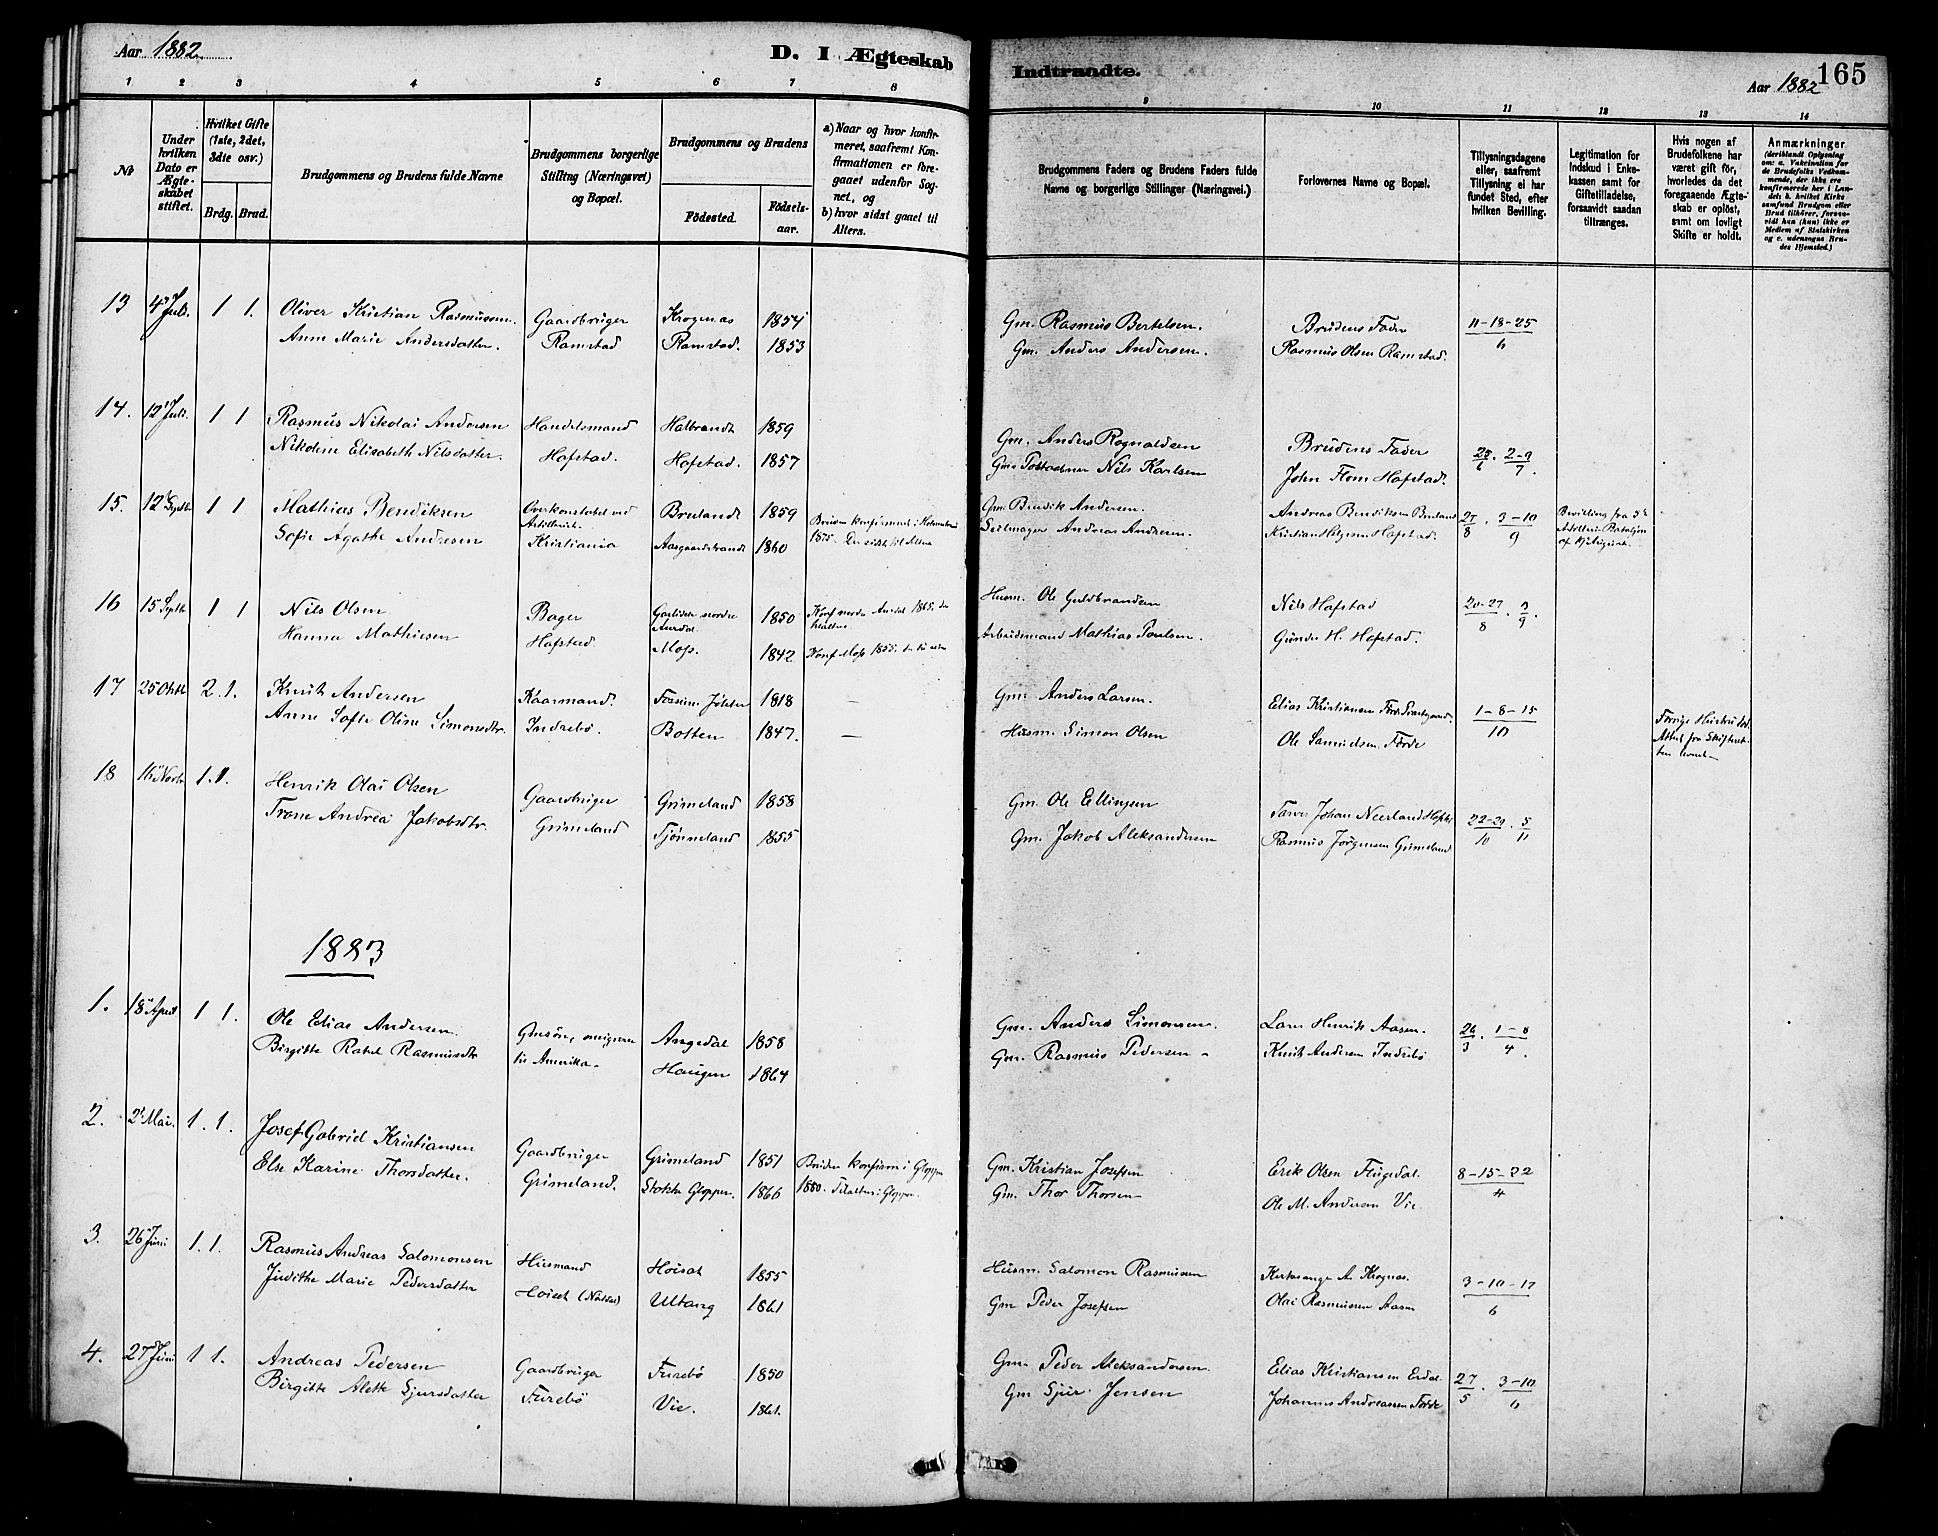 Aar 1882
D. I Ægteskab
Indtraadte.
Aar 1882
165
1 2 3 4 5 6 7 8 9 10 11 12 13 14
No
Under hvilken Dato er Ægteskabet stiftet.
Hvilket Gifte (1ste, 2det, 3die osv.)
Brdg. Brud.
Brudgommens og Brudens fulde Navne
Brudgommens borgerlige Stilling (Næringsvei) og Bopæl.
Brudgommens og Brudens
Fødested.
Fødselsaar.
a) Naar og hvor konfirmeret, saafremt Konfirmationen er foregaaet udenfor Sognet, og
b) hvor sidst gaaet til Alters.
Brudgommens Faders og Brudens Faders fulde Navne og borgerlige Stillinger (Næringsvei.)
Forlovernes Navne og Bopæl.
Tillysningsdagene eller, saafremt Tillysning ei har fundet Sted, efter hvilken Bevilling.
Legitimation for Indskud i Enkekassen samt for Giftetilladelse, forsaavidt saadan tiltrænges.
Hvis nogen af Brudefolkene har været gift før, hvorledes da det foregaaende Ægteskab er opløst, samt om lovligt Skifte er holdt.
Anmærkninger (deriblandt Oplysning om: a. Vakcination for de Brudefolks Vedkommende, der ikke ere konfirmerede her i Landet; b. hvilket Kirkesamfund Brudgom eller Brud tilhører, forsaavidt han (hun) ikke er Medlem af Statskirken og c. udensogns Brudes Hjemsted.)
13 4 Juli. 1 1. Oliver Kristian Rasmussen. Gaardbruger Krognæs 1854 Gm. Rasmus Bertelsen. Brudens Fader 11-18-25
Anne Marie Andersdatter. Ramstad Ramstad. 1853 Gm. Anders Andersen. Rasmus Olsen Ramstad. 6
14. 12 Juli. 1 1 Rasmus Nikolai Andersen Handelsmand Halbrandt 1859 Gm. Anders Rognaldsen Brudens Fader 25 2-9
Nikoline Elisabeth Nilsdatter. Hafstad. Hafstad. 1857 Gm. Nils Karlsen John Flom Hafstad. 6 7.
15. 12 Septbr 1 1 Mathias Bendiksen Overkonstabel ved Artilleriet Bruland 1859 Bruden konfirmeret i Gm. Bendik Andersen. Andreas Bendiksen Bruland 27 3-10 Bevilling fra 5te
Sofie Agathe Andresen Kristiania Aasgaardstrand 1860 1875. Seilmager Andreas Andresen. Kristian Helgesen Hafstad. 8 9
16 15 Septbr 1 1 Nils Olsen Bager nordre Aurdal 1850 Konf. nordre Aurdal 1865. Husm. Ole Guldbrandsen Nils Hafstad 20-27 3
Hanna Mathiesen Hafstad. Moss. 1842 Konf. Moss 1855. Arbeidsmand Mathias Gunder H. Hafstad. 8 9
17 25 Oktbr 2. 1. Knut Andersen Kaarmand. Jølster 1818 — Gm. Anders Larsen. Elias Kristiansen Førde 1-8-15 Forrige Hustru
Anne Sofie Oline Simonsdtr. Indrebø. Botten 1847. — Husm. Simon Olsen Ole Samuelsen Førde 10 Attest fra Skifteretten
18 16 Novbr 1. 1. Henrik Olai Olsen Gaardbruger Grimeland 1858 Gm. Ole Ellingsen Johan Neerland 22-29 5
Trone Andrea Jakobsdtr. Grimeland Tjønneland 1855 Gm. Jakob Aleksandersen Rasmus Jørgensen Grimeland 10 11
1883
1. 18 April 1 1. Ole Elias Andersen. Gmsøn, Angedal 1858 Gm. Anders Simonsen. Lars Henrik Aasen. 26 1-8
Birgitte Rakel Rasmusdtr til Amerika. Haugen 1864 Gm. Rasmus Pedersen Knut Andersen Indrebø 3 4.
2. 2 Mai. 1. 1. Josef Gabriel Kristiansen Gaardbruger Grimeland 1851 Bruden konfirm. i Gloppen Gm. Kristian Josefsen Erik Olsen Flugedal. 8-15-22
Else Karine Thorsdatter. Grimeland. Gloppen. 1866 1880. Til alters i Gloppen. Gm. Thor Thorsen Ole M. Andersen Vie. 4
3. 26 Juni 1. 1. Rasmus Andreas Salomonsen Husmand 1855 Husm. Salomon Rasmussen Kirkesanger A. Krognæs. 3-10-17
Judithe Marie Pedersdatter Ultang 1861 Gm. Peder Josefsen Olai Rasmussen Aasen 6
4. 27 Juni 1 1. Andreas Pedersen Gaardbruger Furebø 1850 Gm. Peder Aleksandersen. Elias Kristiansen Erdal 27 3-10
Birgitte Alette Sjursdatter Furebø Vie. 1861. Gm Sjur Jensen Johannes Andreassen Førde 5 6